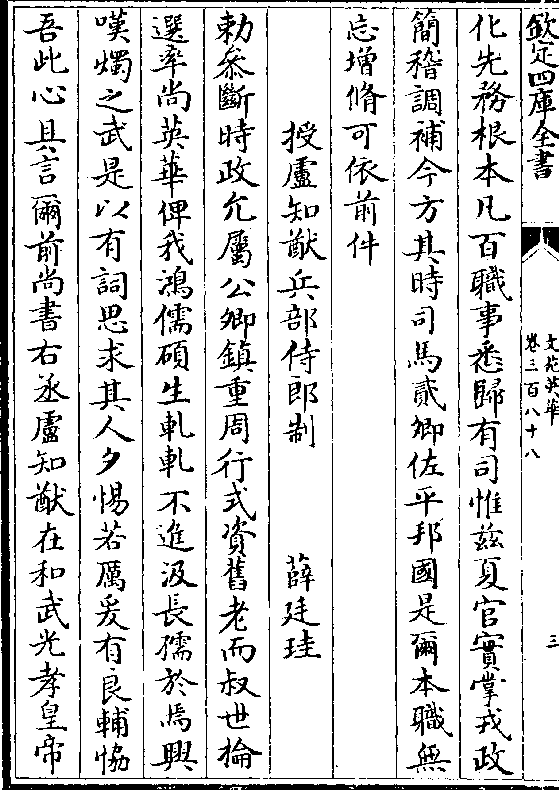 欽定四庫全書
文苑英華
卷三百八十八
三
化先務根本凡百職事悉歸有司惟兹夏官實掌戎政
簡稽調補今方其時司馬貳卿佐平邦國是爾本職無
忘增脩可依前件
授盧知猷兵部侍郎制 薛廷珪
勅叅斷時政允屬公卿鎮重周行式資舊老而叔世掄
選率尚英華俾我鴻儒碩生軋軋不進汲長孺於焉興
嘆燭之武是以有詞思求其人夕惕若厲爰有良輔恊
吾此心具言爾前尚書右丞盧知猷在和武光孝皇帝